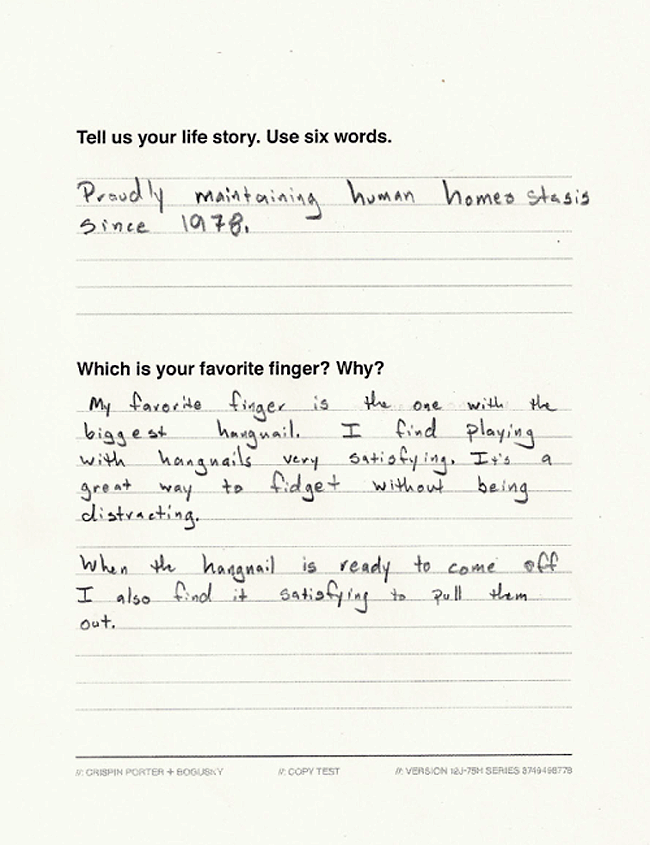 Tell us your life story. Use six words.
Proudly maintaining human homeostasis
since 1978.
Which is your favorite finger? Why?
My favorite finger is the one with the
biggest hangnail. I find playing
with hangnails very satisfying. It's a
great way to fidget without being
distracting.
When the hangnail is ready to come off
I also find it satisfying to pull them
out.
//: CRISPIN PORTER + BOGUSKY //: COPY TEST //: VERSION 12J-75H SERIES 8749498779